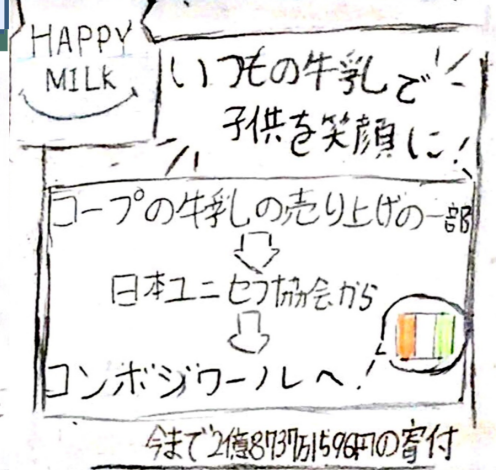 HAPPY
MILK
いつもの牛乳で
子供を笑顔に!
コープの牛乳の売り上げの一部
日本ユニセフ協会から
コンボジワールへ!
今まで2億8737万1596円の寄付